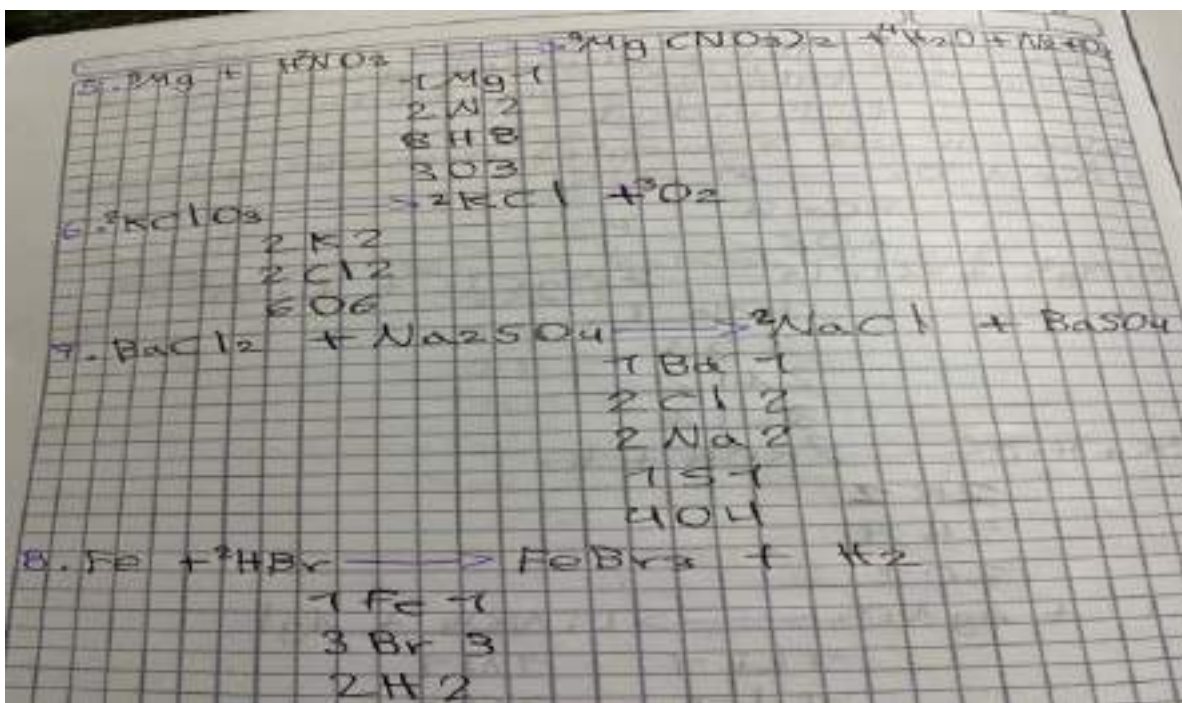 5. 3Mg + HNO3 → 3Mg(NO3)2 + 4H2O + N2+O2
1 Mg 1
2 N 2
8 H 8
3 O 3
6. 2KClO3 → 2KCl + 3O2
2 K 2
2 Cl 2
6 O 6
7. BaCl2 + Na2SO4 → 2NaCl + BaSO4
1 Ba 1
2 Cl 2
2 Na 2
1 S 1
4 O 4
8. Fe + 2HBr → FeBr3 + H2
1 Fe 1
3 Br 3
2 H 2